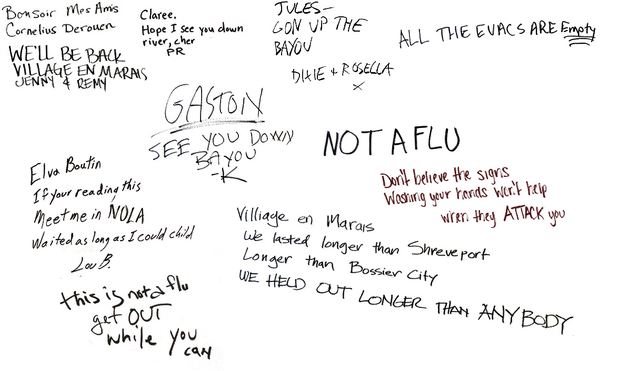 Bonsoir Mes Amis
Cornelius Derouen
WE'LL BE BACK
VILLAGE EN MARAIS
JENNY & REMY
Claree.
Hope I see you down
river, cher
PR
JULES-
GON UP THE
BAYOU
DIXIE + ROSELLA
X
ALL THE EVACS ARE Empty
GASTON
SEE YOU DOWN
BAYOU
-K
NOT A FLU
Don't believe the signs
Washing your hands won't help
when they ATTACK you
Elva Boutin
If your reading this
Meet me in NOLA
Waited as long as I could child
Lou B.
Villiage en Marais
We lasted longer than Shreveport
Longer than Bossier City
WE HELD OUT LONGER THAN ANYBODY
this is not a flu
get OUT
while you
can